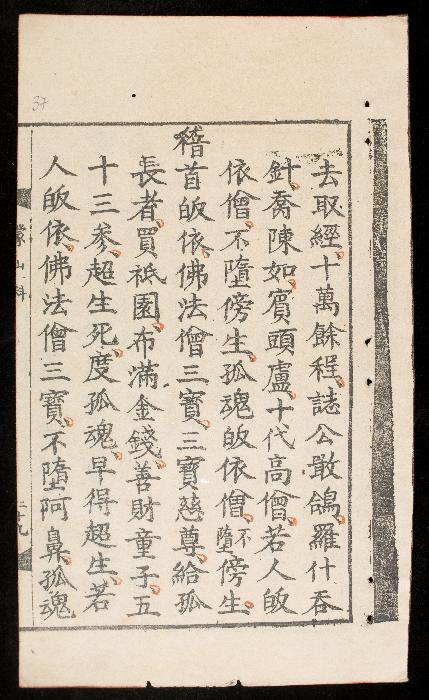 去取經十萬餘程誌公敢鴿羅什吞
針喬陳如賓頭盧十代高僧若人皈
依僧不墮傍生孤魂皈依僧不墮傍生
稽首皈依佛法僧三寶三寶慈尊給孤
長者買祇園布滿金錢善財童子五
十三參超生死度孤魂早得超生若
人皈依佛法僧三寶不墮阿鼻孤魂
蒙山科
二十九
37